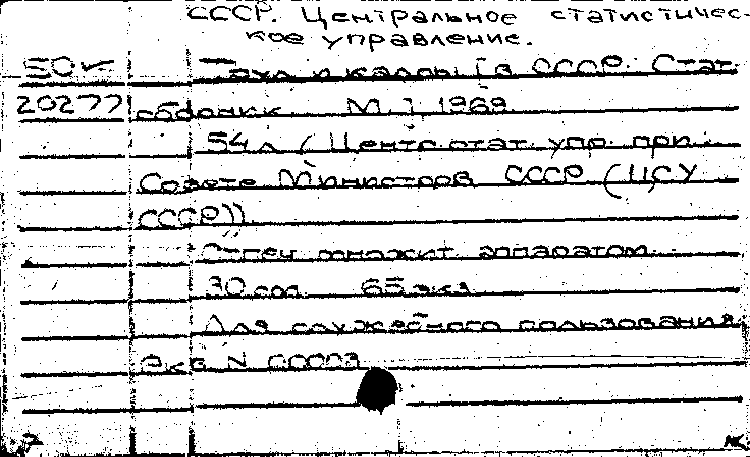 СССР. Центральное статистичес-
кое управление.
50к Труд и кадры [в СССР. Стат.
20277 сборник М.] 1969
54л (Центр. стат. упр. при
Совете Министров СССР (ЦСУ
СССР)).
Отпеч множит. аппаратом
30 сол. 65 экз.
Для служебного пользования
Экз N 00003